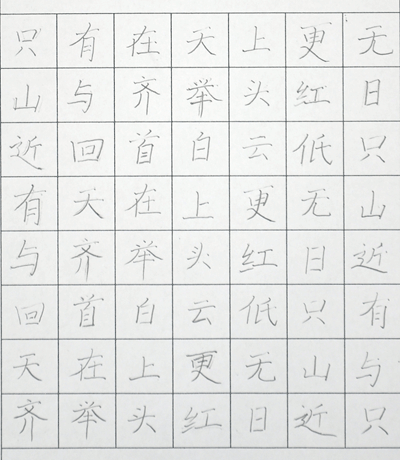 只有在天上更无
山与齐举头红日
近回首白云低只
有天在上更无山
与齐举头红日近
回首白云低只有
天在上更无山与
齐举头红日近只